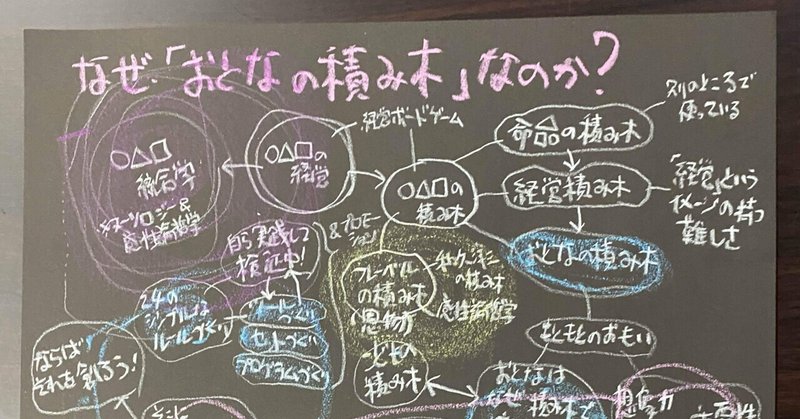 なぜ「おとなの積み木」なのか？
経営ボードゲーム
別のところで
使っている
命名の積み木
○△□
統合学
&
応性論哲学
○△□の
経営
○△□の
積み木
経営積み木
「経営」という
イメージの持つ
難しさ
おとなの積み木
自ら実践して
検証中！
フレーベル
の積み木
(恩物)
の積み木
応性論哲学
24の
シンプルな
ルールづくり
づくり
セットづくり
プログラムづくり
もともとのおもい
ならば
それを創ろう！
積み木
おとなは
なぜ
積み木で
想像力